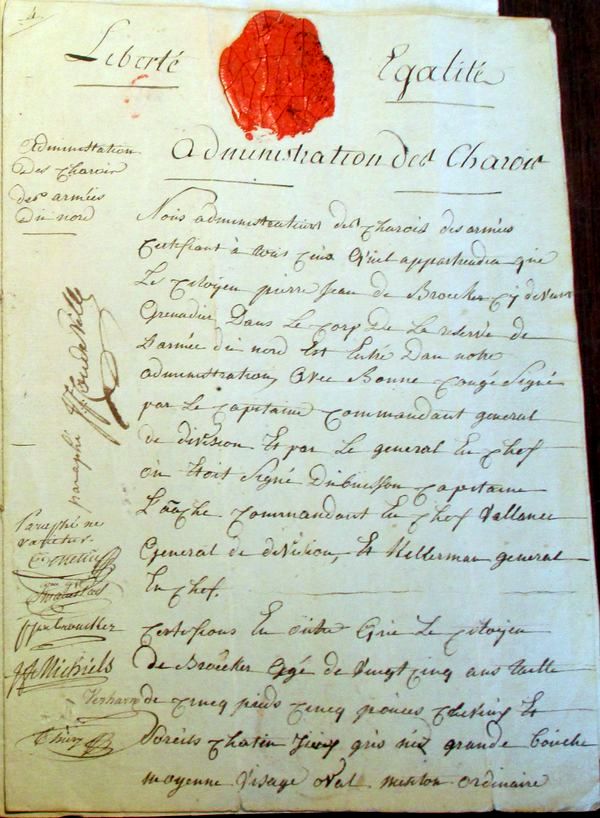 4
Liberté Egalité
administration des Charois
administation
des charois
des armées
du nord
Nous administrateurs des charois des armées
certifiant à tous ceux qu'il appartiendra que
Le citoyen pierre Jean de Broeuker cy devant
Grenadier Dans Le corp de La reserve de
L'armée du nord Est Entré Dans notre
administration, avec Bonne Congé Signé
par Le capitaine commandant general
de division Et par Le general En chef
ou Etoit Signé Dubuisson capitaine
commandant En chef Vallance
General de division, Et Kellerman general
En chef.
certifions En outre que Le citoyen
de Broeuker agé de vingt cinq ans taille
de cincq pieds cincq pouces cheveux Et
Soreils chatin yeux gris nés grande bouche
moyenne visage oval menton ordinaire
paraphé
Paraphé ne
varietur
JJMichiels